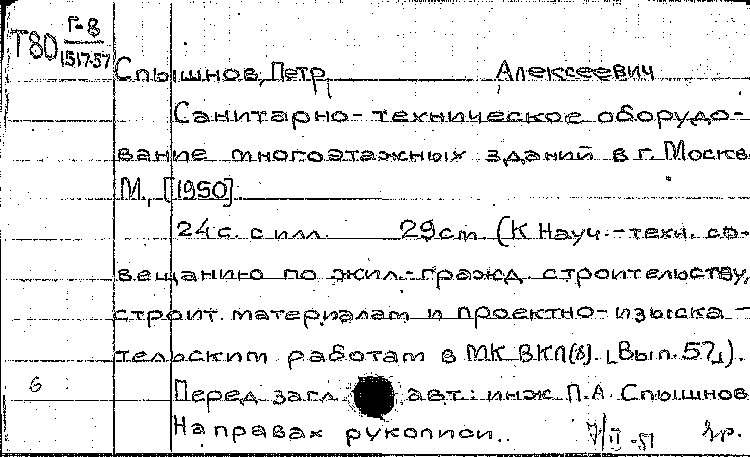 Т80 Г-8
1517-57
Спышнов, Петр Алексеевич
Санитарно-техническое оборудо-
вание многоэтажных зданий в г. Москве
М., [1950]
24 с. с илл. 29 см (К Науч.-техн. со-
вещанию по жил.-гражд. строительству,
строит. материалам и проектно-изыска-
тельским работам в МК ВКП(б). [Вып. 57]).
6 Перед загл. авт.: инж. П.А. Спышнов
На правах рукописи.
7/II-51